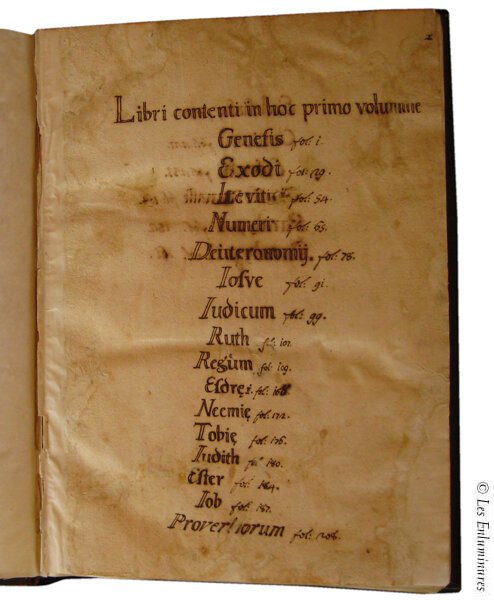 Libri contenti in hoc primo volumine
Genesis fol. 1.
Exodi fol: 29.
Levitici fol: 54.
Numeri fol. 63.
Deuteronomij. fol: 78.
Iosve fol. 91.
Iudicum fol: 99.
Ruth fol: 107.
Regũm fol: 109.
Esdrę fol: 168
Neemię fol: 172.
Tobię fol: 176.
Iudith 180.
Ester fol: 184.
Iob fol: 187.
Proverbiorum fol: 208.
© Les Enluminures